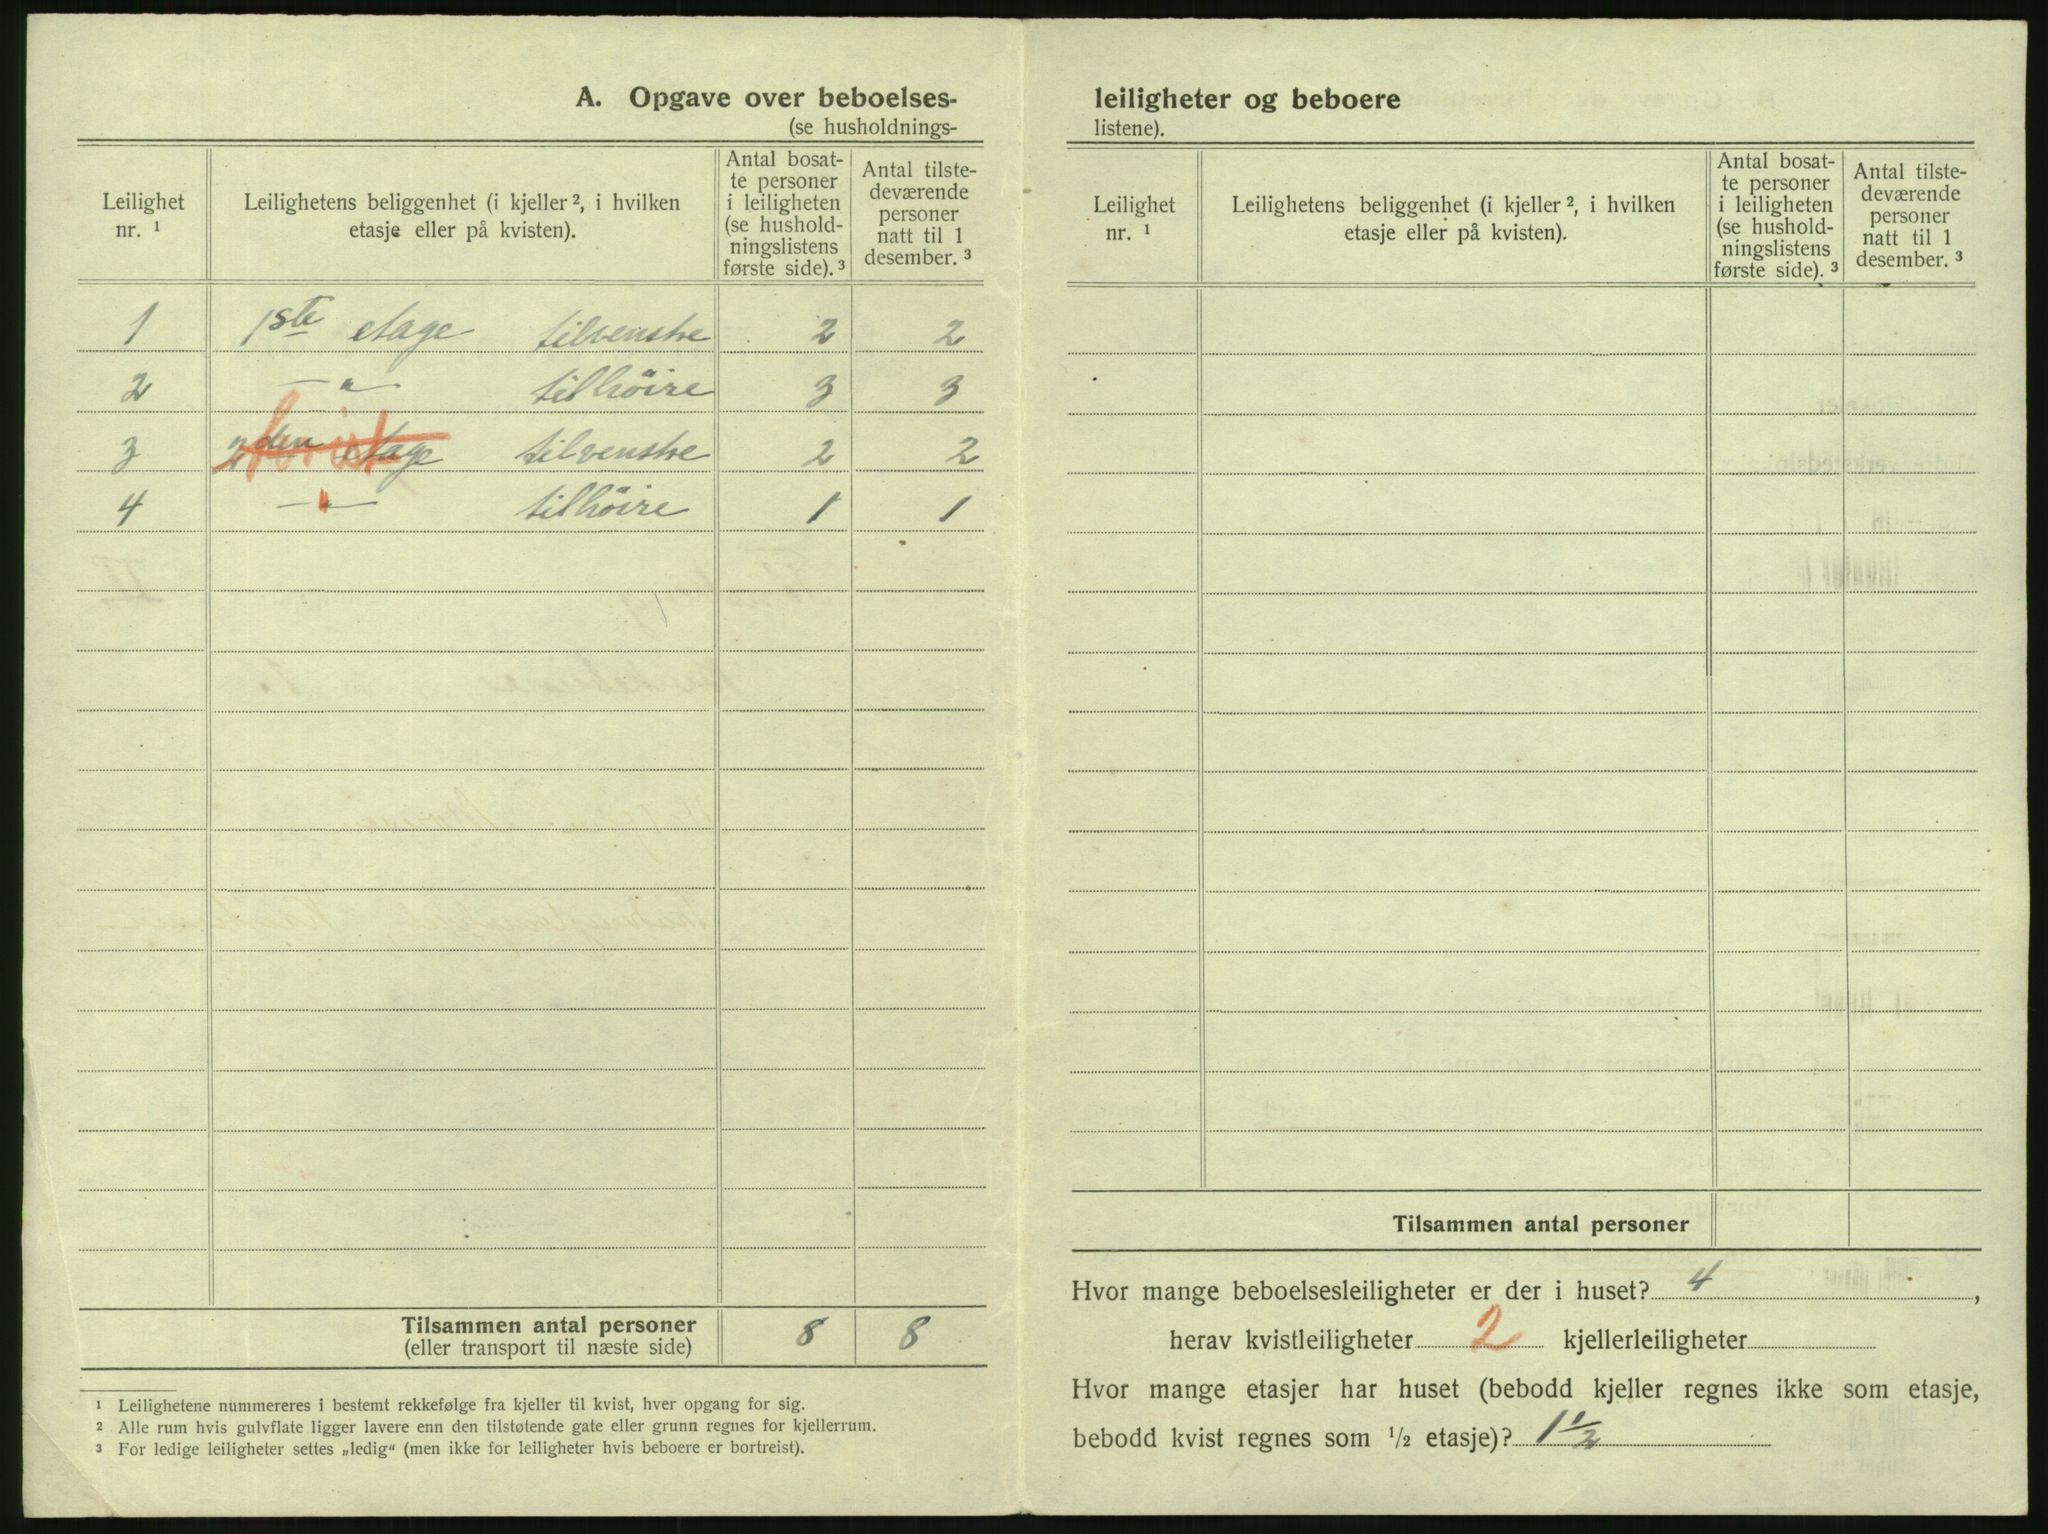 A. Opgave over beboelses-
(se husholdnings-
Leilighet nr. ¹
Leilighetens beliggenhet (i kjeller ², i hvilken etasje eller på kvisten).
Antal bosatte personer i leiligheten (se husholdningslistens første side). ³
Antal tilstedeværende personer natt til 1 desember. ³
1 1ste etage tilvenstre 2 2
2 — " — tilhöire 3 3
3 2den etage kvist tilvenstre 2 2
4 — " — tilhöire 1 1
Tilsammen antal personer 8 8
(eller transport til næste side)
¹ Leilighetene nummereres i bestemt rekkefølge fra kjeller til kvist, hver opgang for sig.
² Alle rum hvis gulvflate ligger lavere enn den tilstøtende gate eller grunn regnes for kjellerrum.
³ For ledige leiligheter settes „ledig“ (men ikke for leiligheter hvis beboere er bortreist).
leiligheter og beboere
listene).
Leilighet nr. ¹
Leilighetens beliggenhet (i kjeller ², i hvilken etasje eller på kvisten).
Antal bosatte personer i leiligheten (se husholdningslistens første side). ³
Antal tilstedeværende personer natt til 1 desember. ³
Tilsammen antal personer
Hvor mange beboelsesleiligheter er der i huset? 4,
herav kvistleiligheter 2 kjellerleiligheter
Hvor mange etasjer har huset (bebodd kjeller regnes ikke som etasje,
bebodd kvist regnes som ½ etasje)? 1 ½